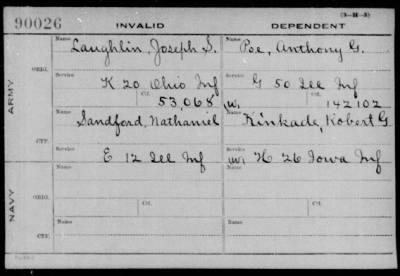 (3-M-3)
90026 INVALID DEPENDENT
Name Laughlin, Joseph S. Name Poe, Anthony G.
ORIG.
Service K 20 Ohio Inf Service G 50 Ill Inf
Ctf. 53,068 W. Ctf. 142102
ARMY
Name Sandford, Nathaniel Name Kinkade, Robert G.
CTF.
Service E 12 Ill Inf Service W H 26 Iowa Inf
Name Name
ORIG.
Service Service
Ctf. Ctf.
NAVY
Name Name
CTF.
Service Service